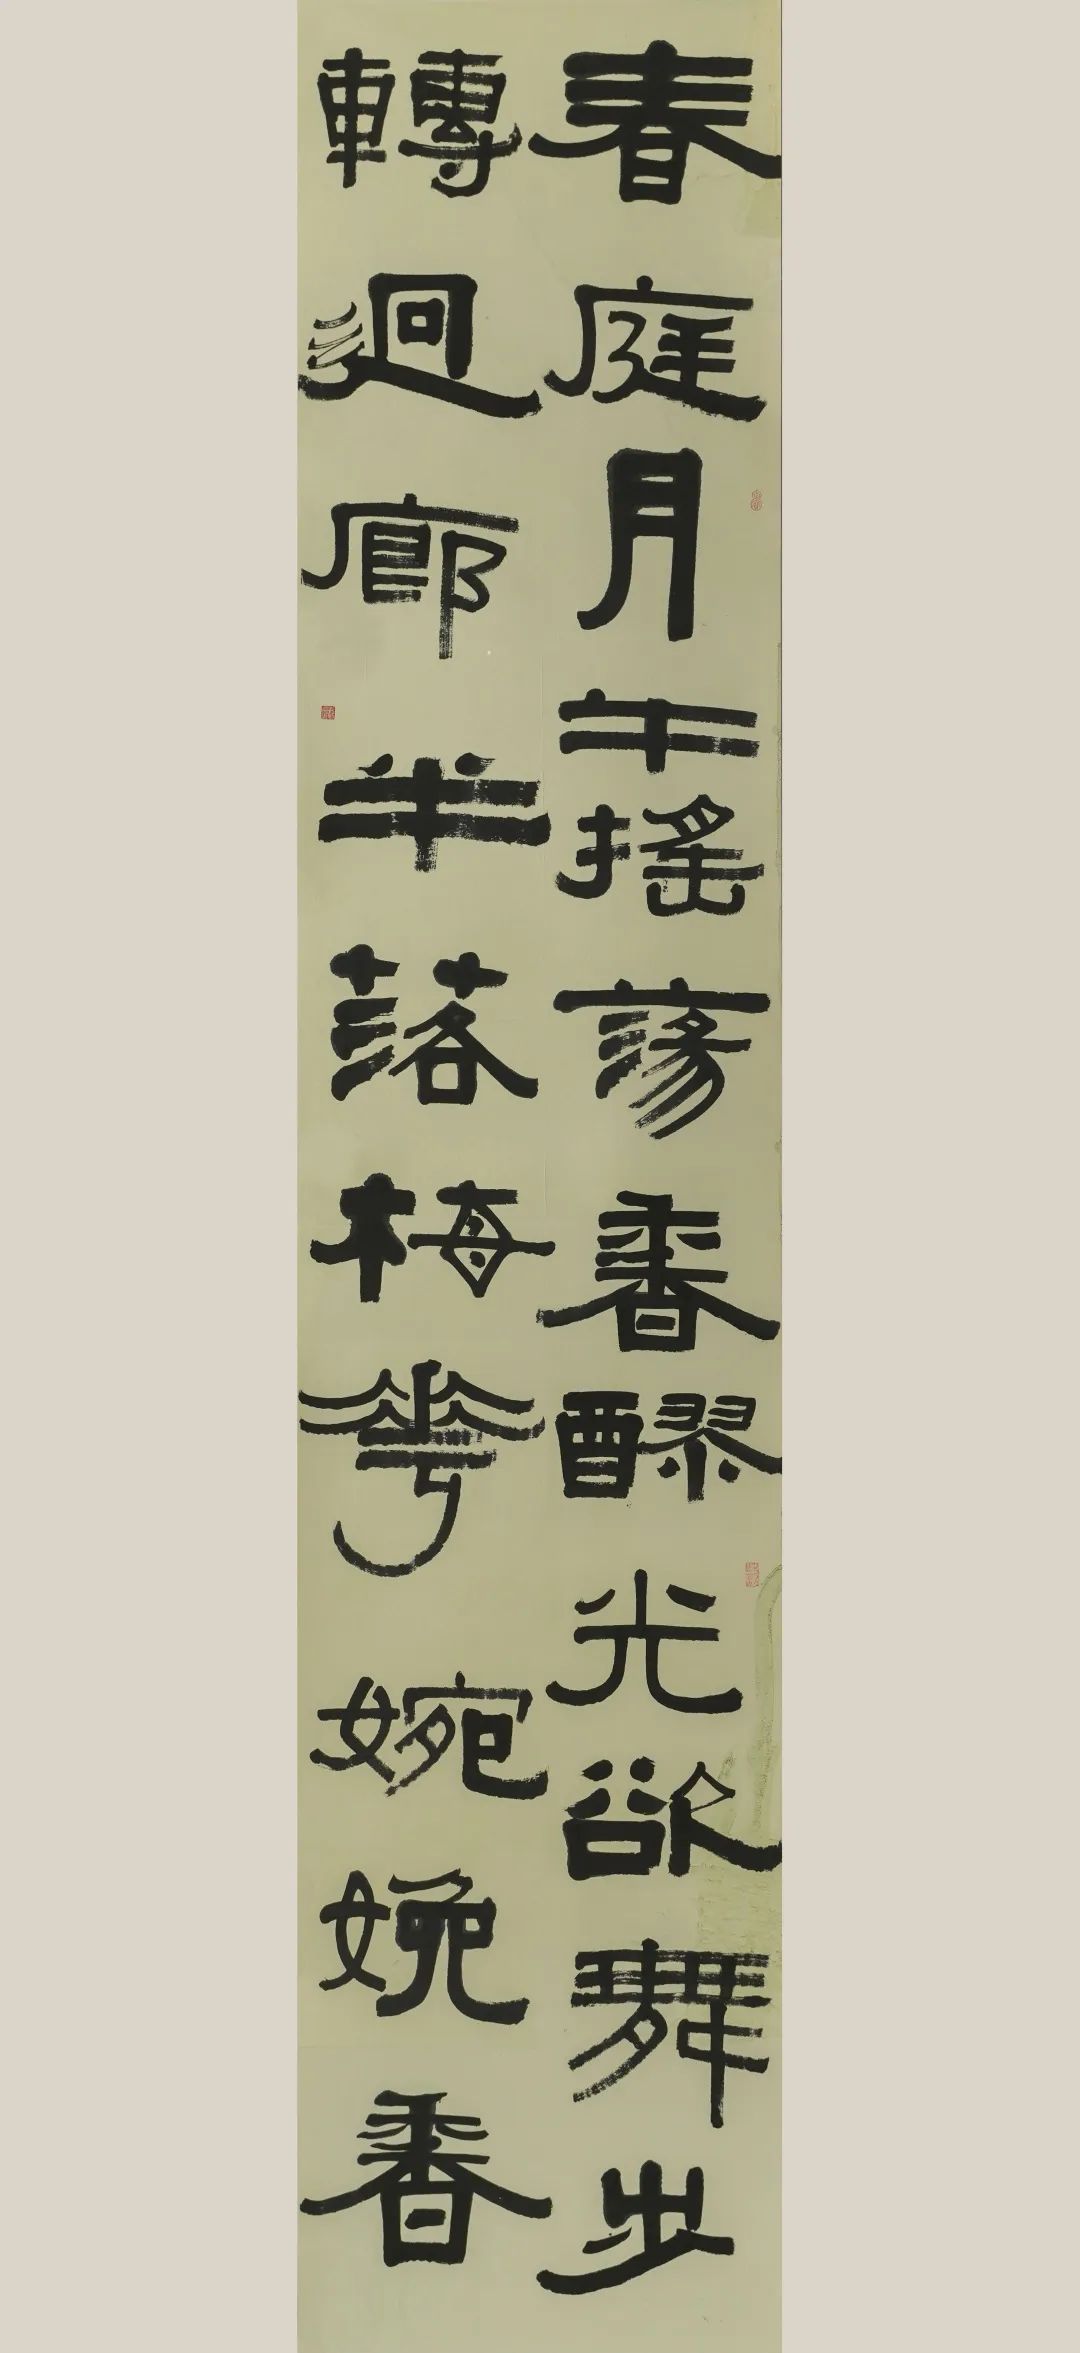 春庭月午搖蕩香醪光欲舞步
轉迴廊半落梅花婉娩香